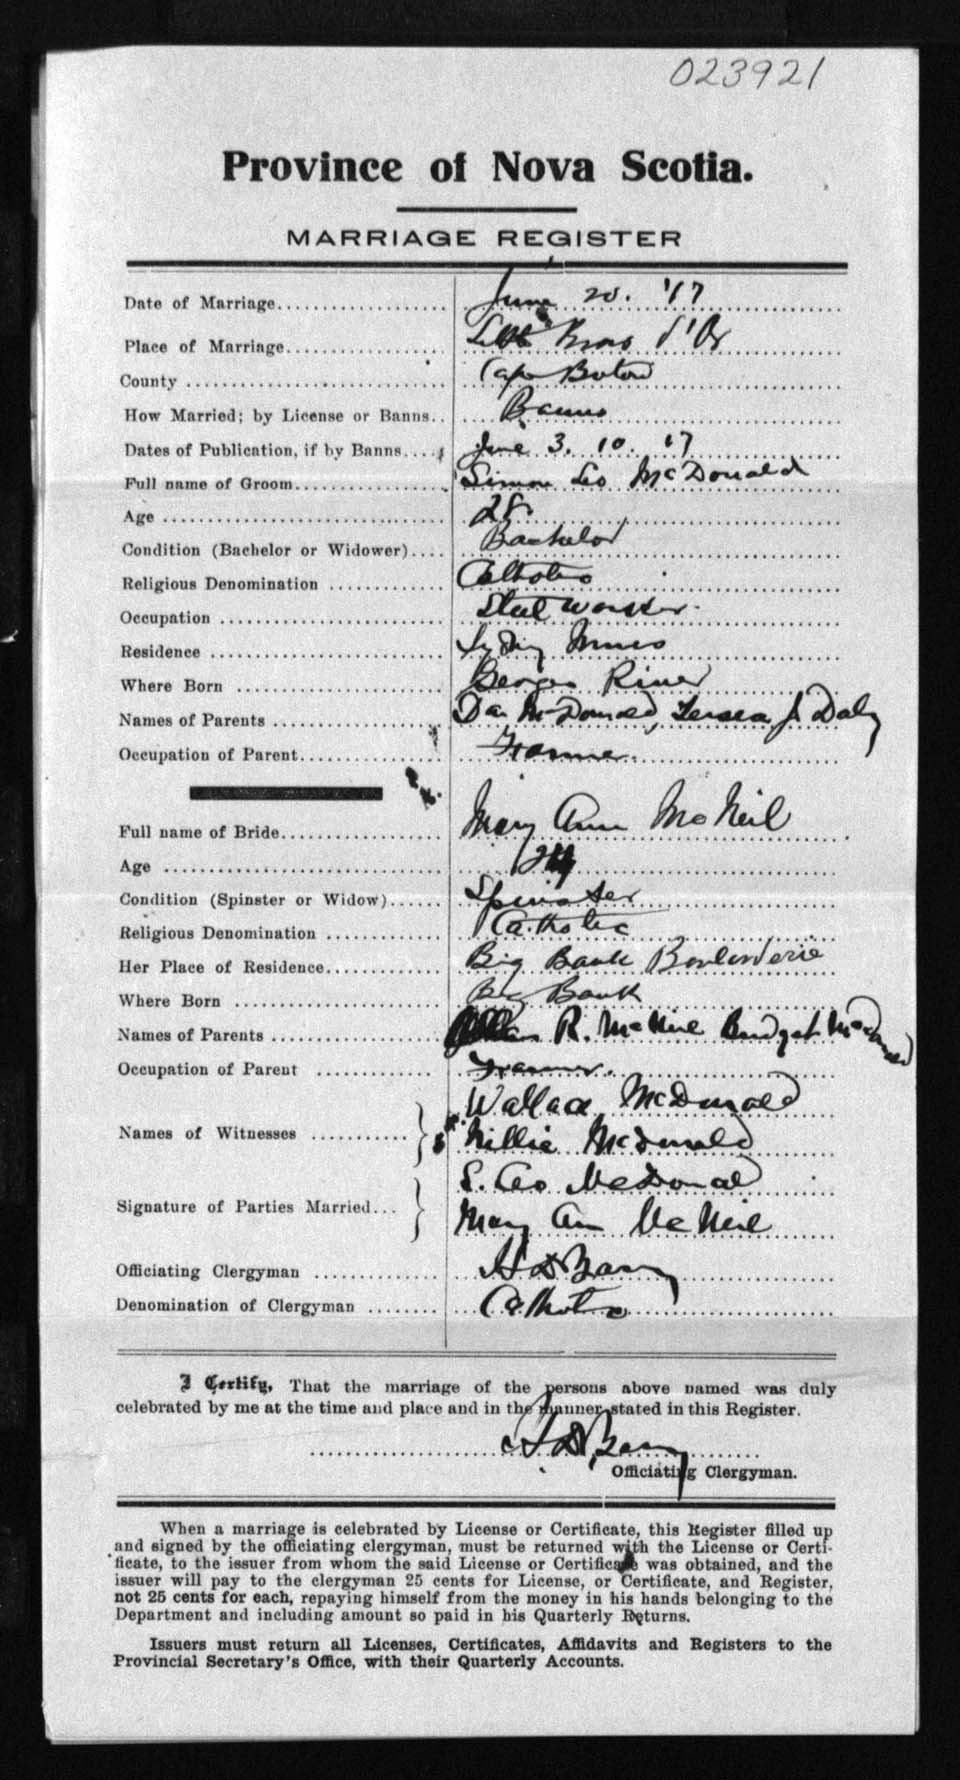 023921
Province of Nova Scotia.
MARRIAGE REGISTER
Date of Marriage June 20. '17
Place of Marriage Little Bras d'Or
County Cape Breton
How Married; by License or Banns Banns
Dates of Publication, if by Banns June 3. 10. 17
Full name of Groom Simon Leo McDonald
Age 28
Condition (Bachelor or Widower) Bachelor
Religious Denomination Catholic
Occupation Steel worker
Residence Sydney Mines
Where Born Georges River
Names of Parents Dan McDonald, Teresa J Daly
Occupation of Parent Farmer
Full name of Bride Mary Ann McNeil
Age 24
Condition (Spinster or Widow) Spinster
Religious Denomination Catholic
Her Place of Residence Big Bank Boularderie
Where Born Big Bank
Names of Parents R. McNeil Bridget McDonald
Occupation of Parent Farmer.
Names of Witnesses Wallace McDonald
Millie McDonald
Signature of Parties Married S. Leo McDonald
Mary Ann McNeil
Officiating Clergyman H D Barry
Denomination of Clergyman Catholic
I Certify, That the marriage of the persons above named was duly
celebrated by me at the time and place and in the manner stated in this Register.
H D Barry
Officiating Clergyman.
When a marriage is celebrated by License or Certificate, this Register filled up
and signed by the officiating clergyman, must be returned with the License or Certi-
ficate, to the issuer from whom the said License or Certificate was obtained, and the
issuer will pay to the clergyman 25 cents for License, or Certificate, and Register,
not 25 cents for each, repaying himself from the money in his hands belonging to the
Department and including amount so paid in his Quarterly Returns.
Issuers must return all Licenses, Certificates, Affidavits and Registers to the
Provincial Secretary's Office, with their Quarterly Accounts.